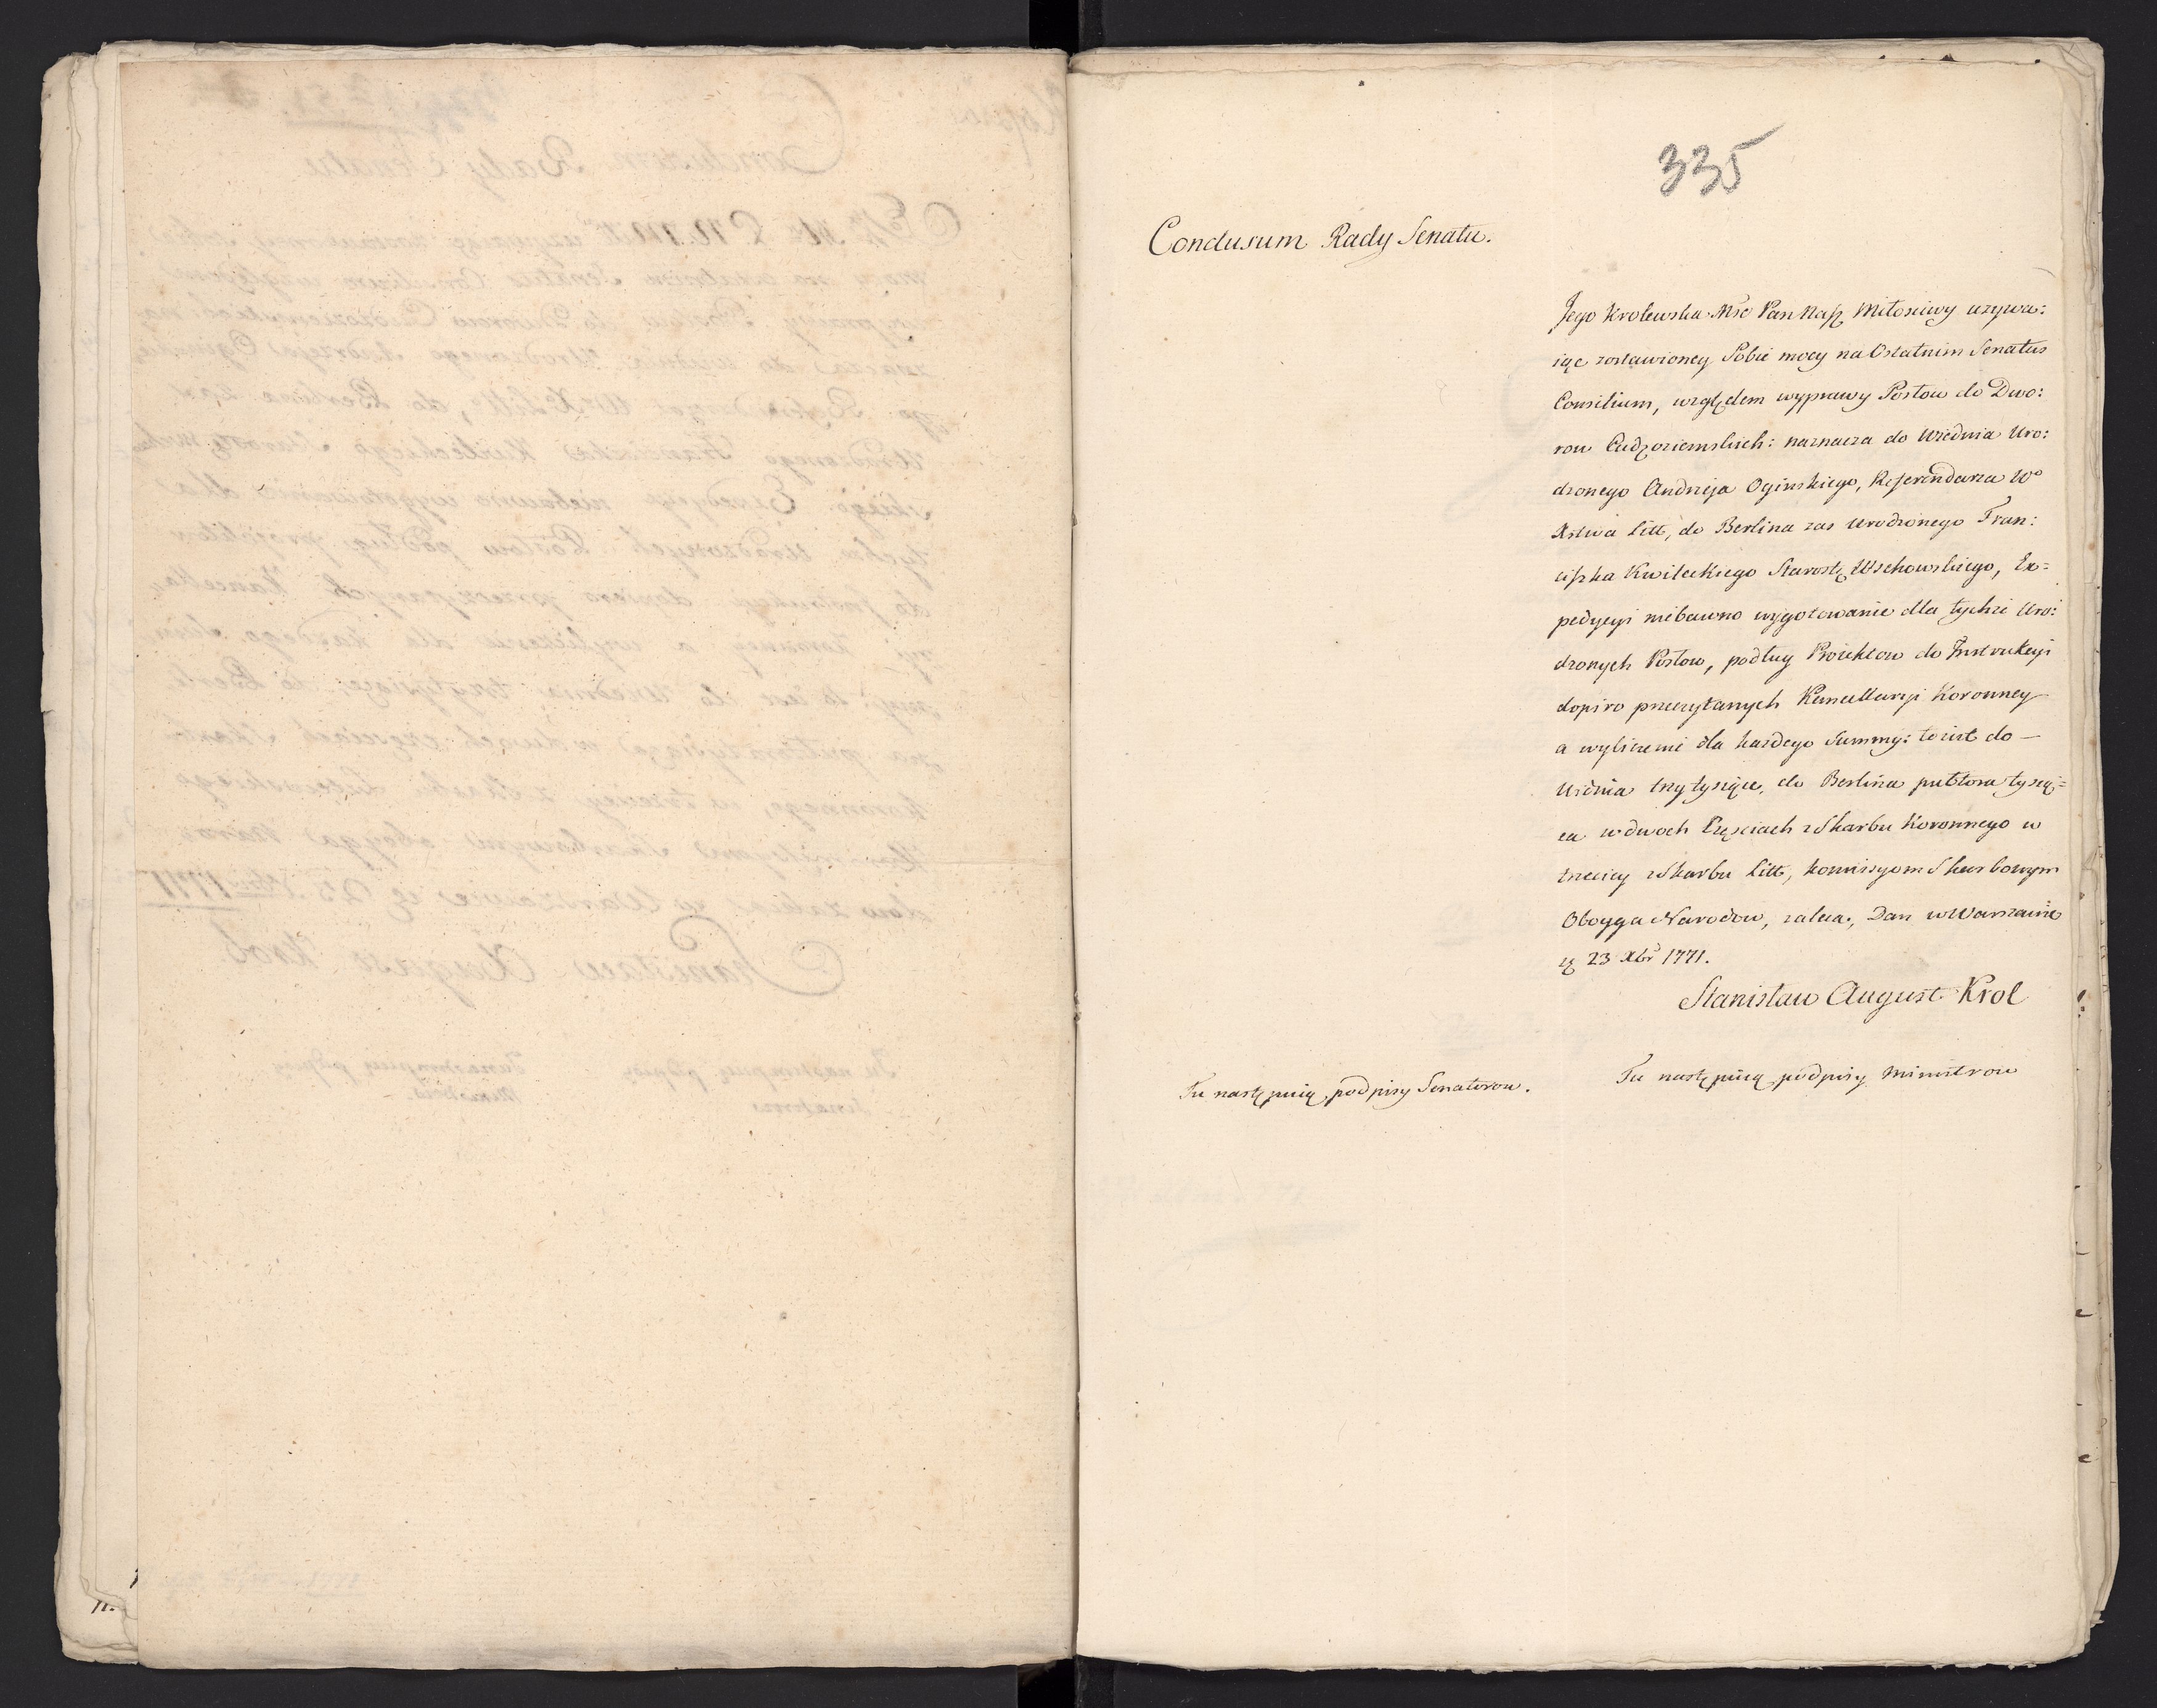 335
Conclusum Rady Senatu.
Jego Krolewska Mśc Pan Nasz Miłosciwy uzywa:
iąc zostawioney Sobie mocy na Ostatnim Senatus
Consilium, względem wyprawy Posłow do Dwo:
row Cudzoziemskich: naznacza do Wiednia Uro:
dzonego Andrzeja Oginskiego, Referendarza Wo
Xstwa Litt, do Berlina zas Urodzonego Fran:
ciszka Kwileckiego Starostę Wschowskiego, Ex=
pedycyi niebawno wygotowanie dla tychże Uro:
dzonych Posłow, podług Proiektow do Instrukcyi
dopiro przeczytanych Kancellaryi Koronney
a wyliczenie dla kazdego Summy: toiest do —
Widnia trzy tysiące, do Berlina pułtora tysią=
ca w dwoch Częsciach z Skarbu Koronnego w
trzeciey z Skarbu Litt, Kommissyom Skarbowym
Oboyga Narodow, zaleca., Dan w Warszawie
ię 23 Xbr 1771.
Stanisław August Krol
Tu następuią podpisy Senatorow.
Tu następuią podpisy Ministrow